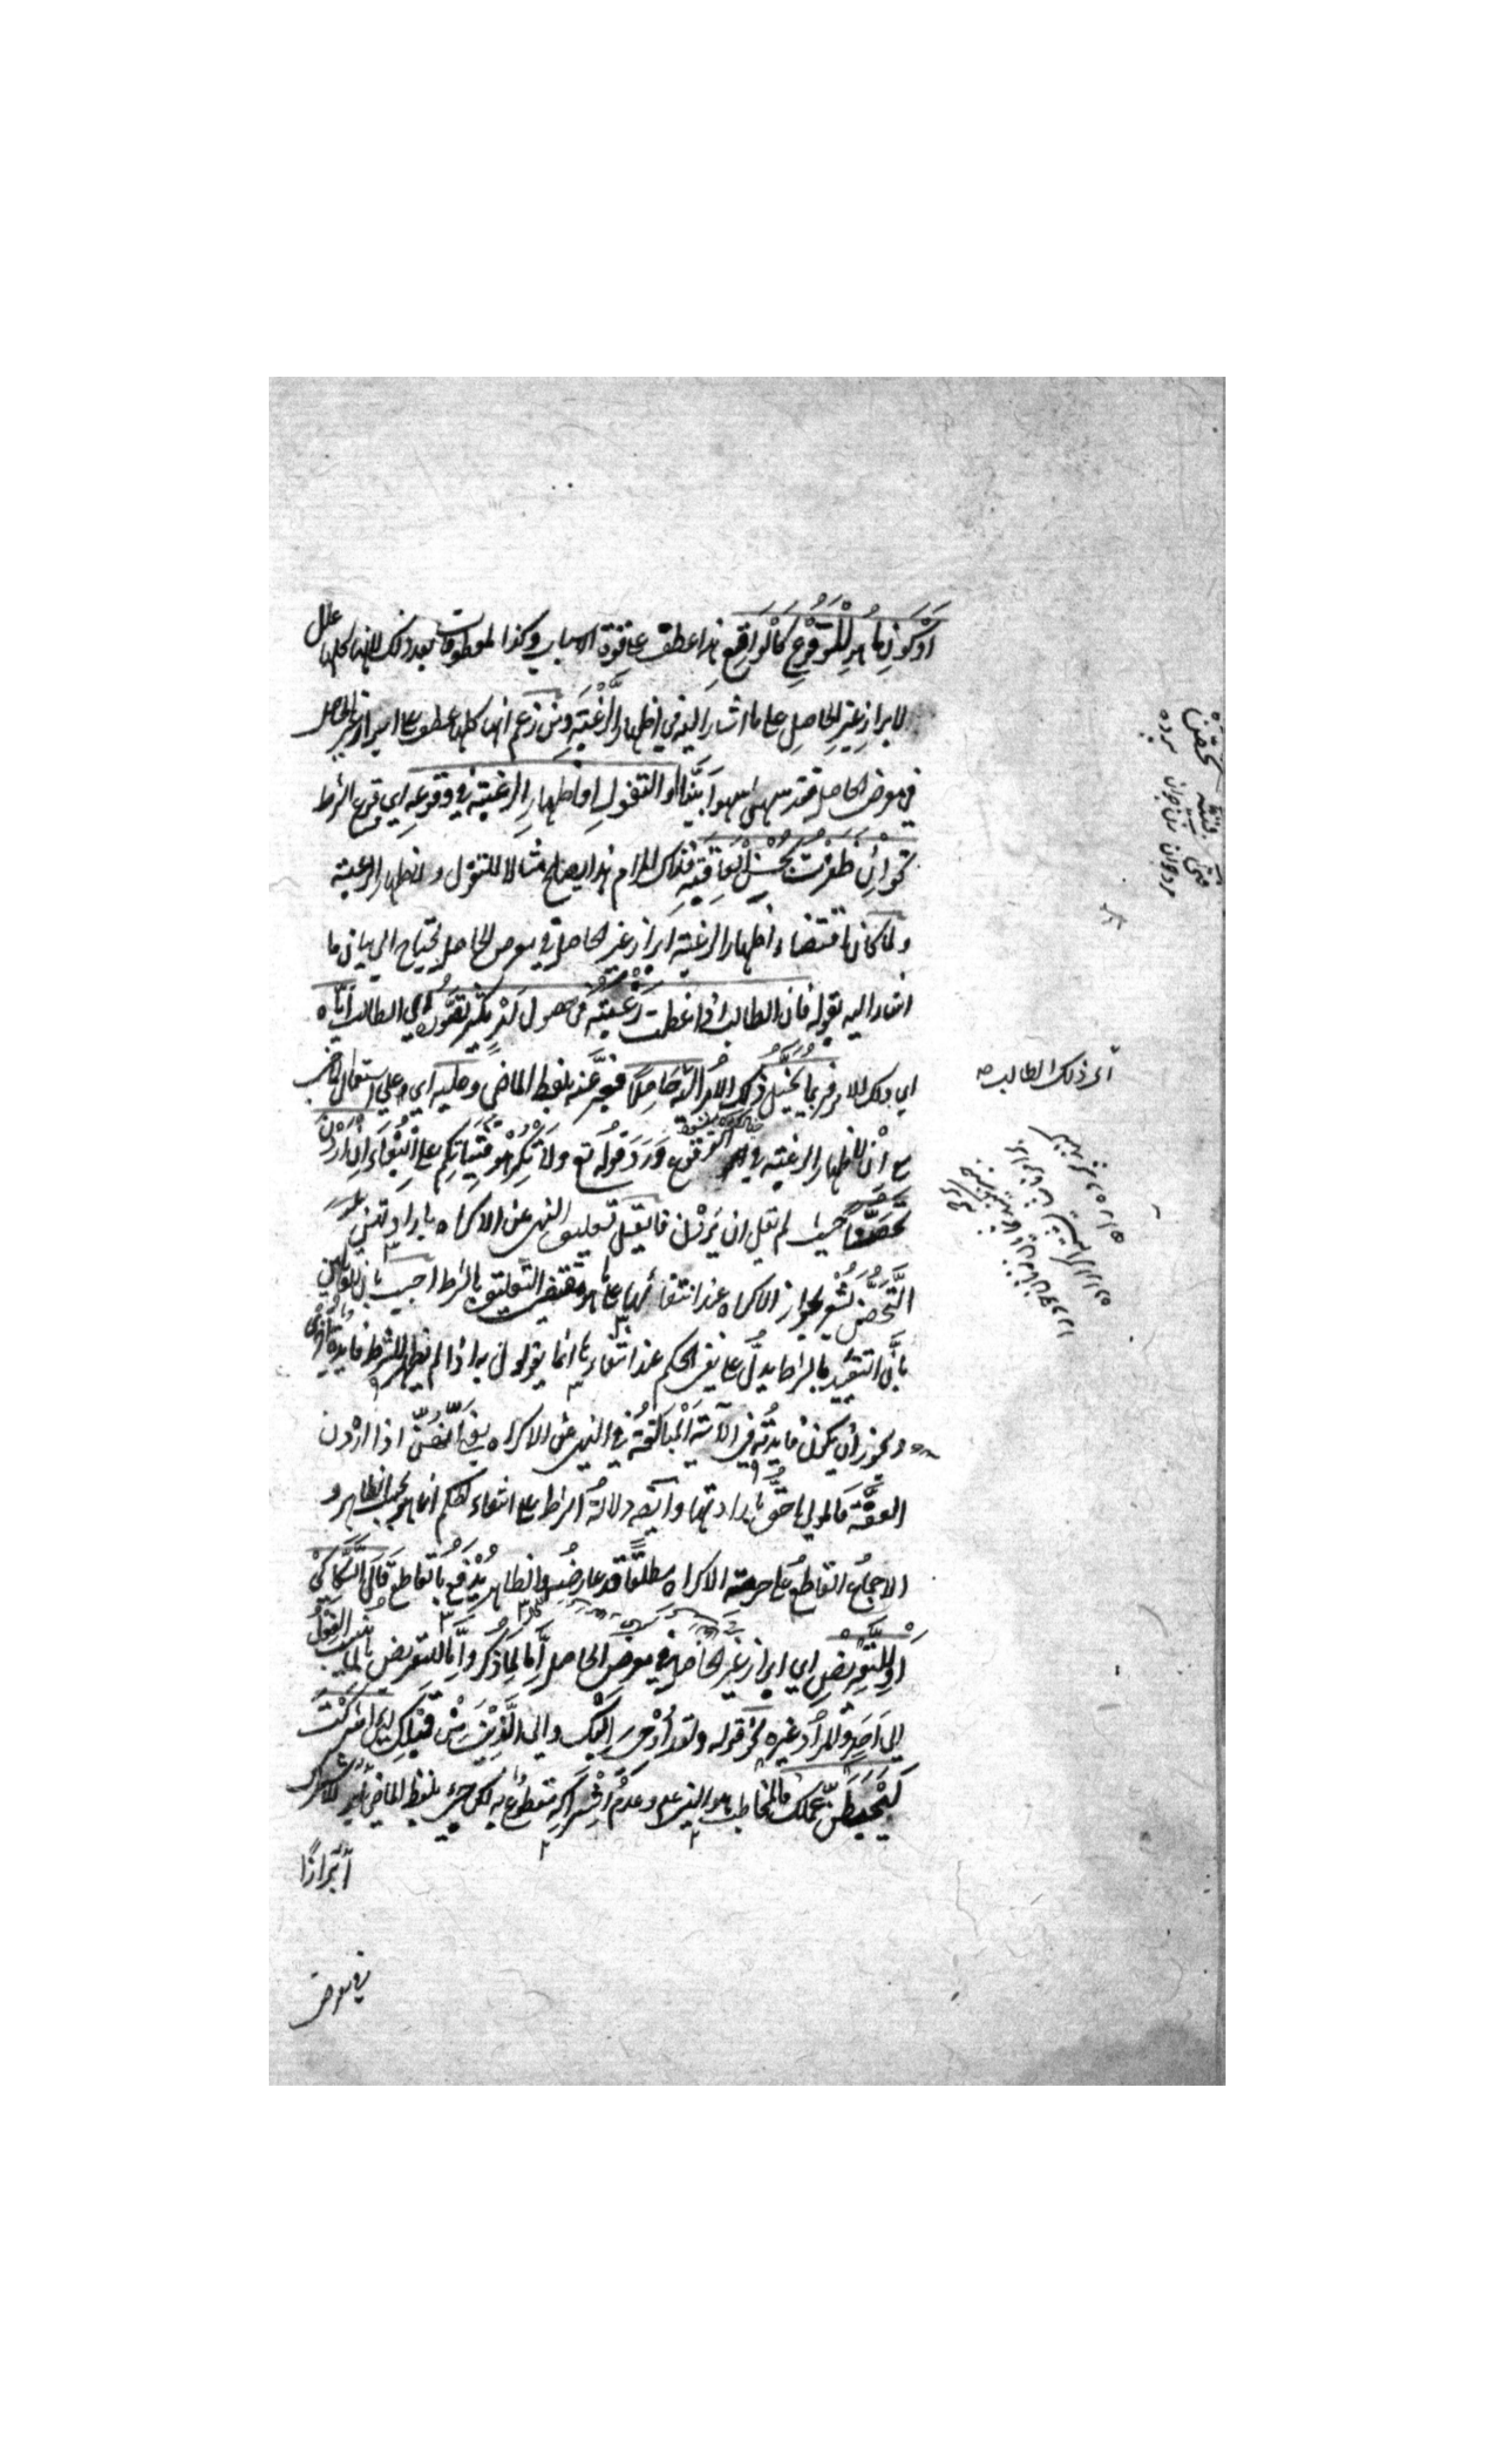 اَوْ كَوْنِ ما هو لِلْوُقُوْعِ كَالْوَاقِعِ هذا عطف على قوة الاسباب وكذا المعطوفات بعد ذلك لانها كلها علل
لابراز غيرِ الحاصلِ على ما اشار اليه في اظهار الرَّغْبَةِ ومن زعم انها كلها عطف على ابراز غير الحاصل
في معرض الحاصل فقد سهى سهواً بَيِّناً او التفؤلِ او اظهارِ الرغبة في وقوعه اي وقوع الشرط
نحو اِنْ ظَفِرْتُ بِحُسْنِ الْعَاقِبَةِ فذاك المرام هذا يصلح مثالا للتفؤل ولاظهار الرغبة
ولما كان اقتضاء اظهار الرغبة ابراز غير الحاصل في معرض الحاصل يحتاج الى بيان ما
اشار اليه بقوله فان الطالب اذا عظمت رَغْبَتُه في حصول امْرٍ يكثر تصَوُّرُه اي الطالب اِيّاه
اي ذلك الامر فربما يُخَيَّلُ ذلك الامرُ اليه حَاصِلاً فيعبَّر عنه بلفظ الماضي وعليه اي وعلى استعمال الماضي
مع اِنْ لاظهار الرغبة في الوقوع وَرَدَ قولُه تع ولا تُكْرِهُوْا فَتَيَاتِكُم على الْبِغَاءِ اِن اَرَدْنَ
تَحَصُّناً حيث لم يقل ان يُرِدْنَ فان قيل تعليق النهي عن الاكراه بارادتهن
التَّحَصُّنَ يُشْعِرُ بجواز الاكراه عند انتفائها على ما هو مقتضى التعليق بالشرط اجيب بان القائلين
باَنَّ التقييد بالشرط يدلُّ على نفي الحكم عند انتفائه انما يقولون به اذا لم يظهر للشرط فايدة اُخْرى
ويجوز اَن يكون فايدتُه في الآيةِ الْمبالغةُ في النهي عن الاكراه يعني اَنَّهُنَّ اذا اَرَدْن
العِفَّةَ فالمولى احَقُّ بارادتها وايضا دلالةُ الشرط على انتفاء الحكم انما هو بحسب الظاهر و
الاجماعُ القاطعُ على حرمة الاكراه مطلقًا قد عارضَه والظاهر يُدْفَعُ بالقاطع قَالَ السَّكَّاكِيُّ
اَوْ لِلتَّعْرِيْضِ اي ابراز غير الحاصل في معرض الحاصل اِمّا لِما ذكر واِمّا للتعريض بان يُنسب الفعلُ
الى اَحَدٍ والمُرادُ غيره نحو قوله ولقد اُوْحِيَ اِلَيْكَ والى الَّذِيْنَ مِنْ قَبْلِكَ لئن اشْرَكْتَ
لَيَحْبَطَنَّ عَمَلُكَ فالمخاطب هو النبي علم وعدمُ اِشْراكِه مقطوعٌ به لكن جيء بلفظ الماضي
اِبْرازًا
في معرض
اى ذلك الطالب صه